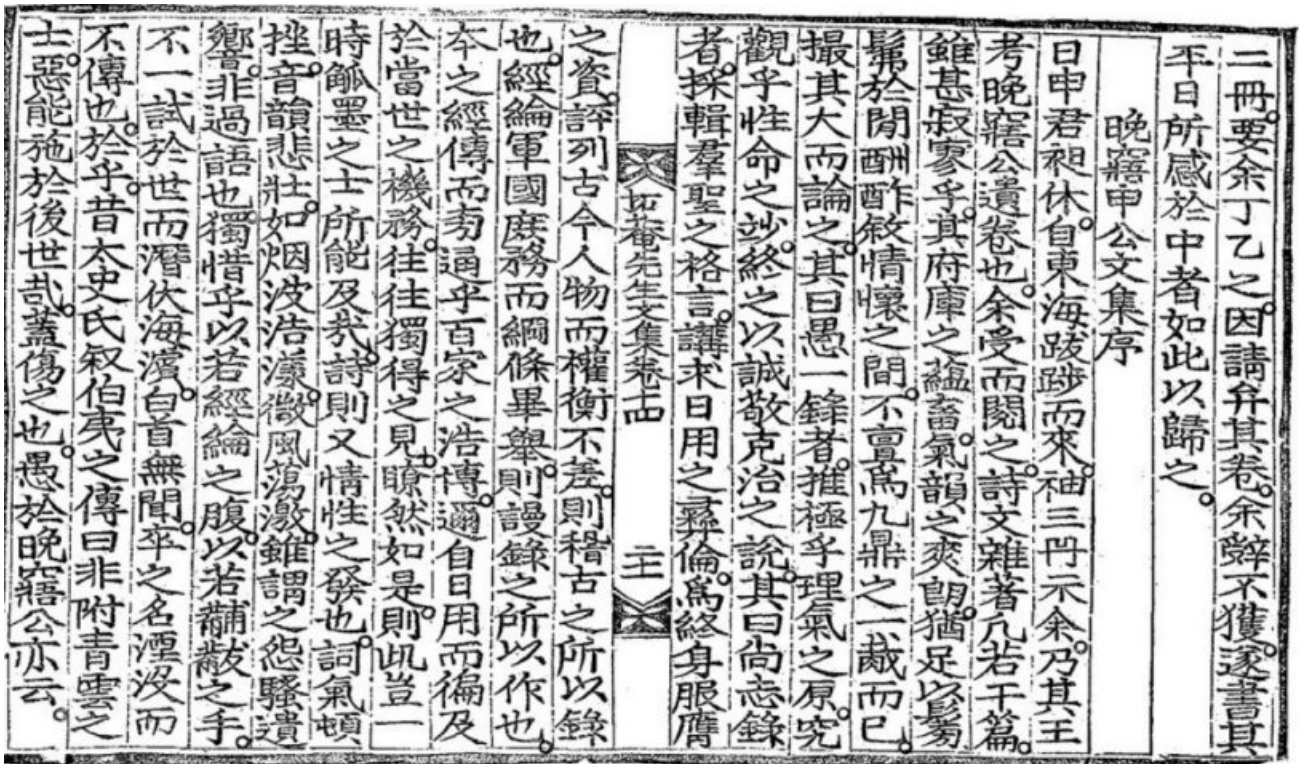 二冊。要余丁乙之。因請弁其卷。余辭不獲。遂書其
平日所感於中者如此以歸之。
晩寤申公文集序
日申君昶休。自東海跋踄而來。袖三冊示余。乃其王
考晩寤公遺卷也。余受而閱之。詩文雜著凡若干篇。
雖甚寂寥乎。其府庫之蘊畜。氣韻之爽朗。猶足以髣
髴於閒酬酢敘情懷之間。不亶爲九鼎之一胾而已。
撮其大而論之。其曰愚一錄者。推極乎理氣之原。究
觀乎性命之玅。終之以誠敬克治之說。其曰尙志錄
者。採輯羣聖之格言。講求日用之彛倫。爲終身服膺
菴先生文集卷十四
二十
之資。評列古今人物而權衡不差。則稽古之所以錄
也。經綸軍國庶務而綱條畢舉。則謾錄之所以作也。
本之經傳而旁通乎百家之浩博。邇自日用而徧及
於當世之機務。往往獨得之見。瞭然如是。則此豈一
時觚墨之士所能及㢤。詩則又情性之發也。詞氣頓
挫。音韻悲壯。如烟波浩漾。微風蕩激。雖謂之怨騷遺
響。非過語也。獨惜乎以若經綸之腹。以若黼黻之手。
不一試於世而潛伏海濱。白首無聞。卒之名湮沒而
不傳也。於乎。昔太史氏叙伯夷之傳曰非附靑雲之
士。惡能施於後世哉。蓋傷之也。愚於晩寤公亦云。